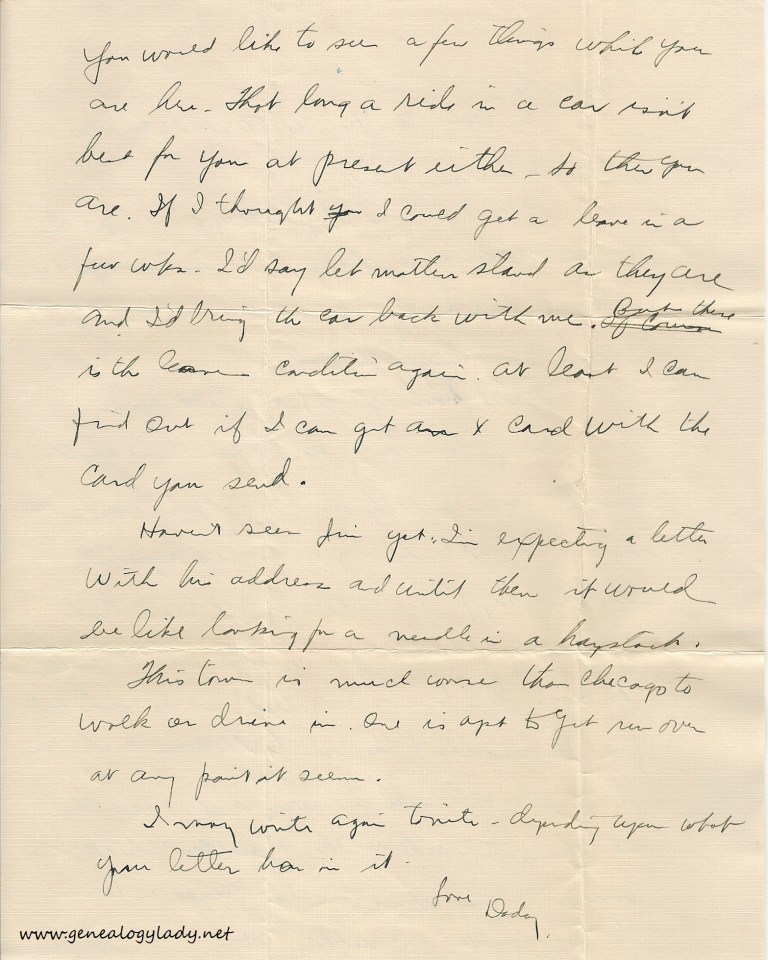 You would like to see a few things while you
are here - That long a ride in a car isn't
best for you at present either - so there you
are. If I thought you I could get a leave in a
few wks. I'd say let matters stand as they are
and I'd bring the car back with me. But there
is the leave condition again. At least I can
find out if I can get an X card with the
card you send.
Haven't seen Jim yet. I'm expecting a letter
with his address and until then it would
be like looking for a needle in a haystack.
This town is much worse than Chicago to
walk or drive in. One is apt to get run over
at any point it seems.
I may write again tonite - depending upon what
your letter has in it.
Love
Daddy.
www.genealogylady.net